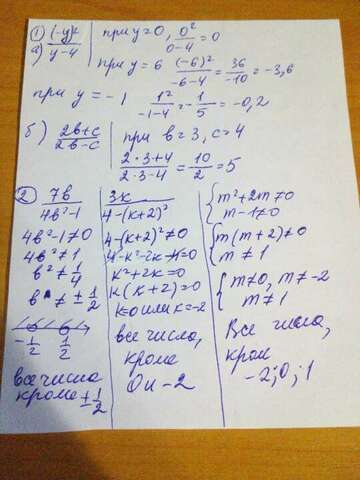 1) а) (-y)² / y-4
при y=0, 0²/0-4 = 0
при y = 6 (-6)²/-6-4 = 36/-10 = -3,6
при y = -1 1²/-1-4 = -1/5 = -0,2
б) 2в+с / 2в-с
при в=3, с=4
2·3+4 / 2·3-4 = 10/2 = 5
2) 7в / 4в²-1
4в²-1≠0
4в²≠1
в²≠1/4
в ≠ ±1/2
-1/2 1/2
все числа
кроме ±1/2
3к / 4-(к+2)²
4-(к+2)²≠0
к²+2к=0
к(к+2)=0
к=0 или к=-2
все числа,
кроме
0 и -2
{ m²+2m≠0
m-1≠0
{ m(m+2)≠0
m ≠ 1
{ m≠0, m≠-2
m≠1
Все числа,
кром
-2; 0; 1